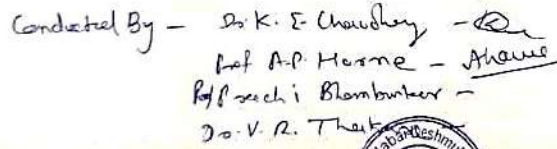 Conducted By - Dr. K. E. Chaudhary -
Prof A.P. Harne - Aharne
Prof Prachi Bhamburkar -
Dr. V. R. Thak